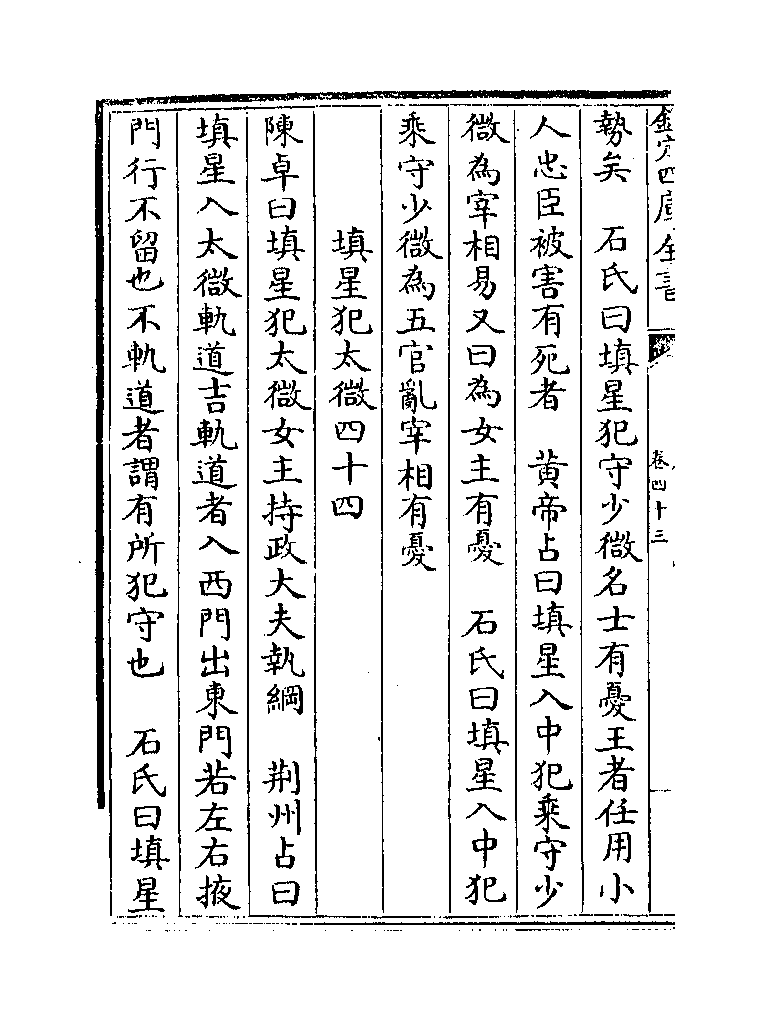 欽定四庫全書
卷四十三
勢矣　石氏曰填星犯守少微名士有憂王者任用小
人忠臣被害有死者　黄帝占曰填星入中犯乘守少
微為宰相易又曰為女主有憂　石氏曰填星入中犯
乘守少微為五官亂宰相有憂
填星犯太微四十四
陳卓曰填星犯太微女主持政大夫執綱　荆州占曰
填星入太微軌道吉軌道者入西門出東門若左右掖
門行不留也不軌道者謂有所犯守也　石氏曰填星